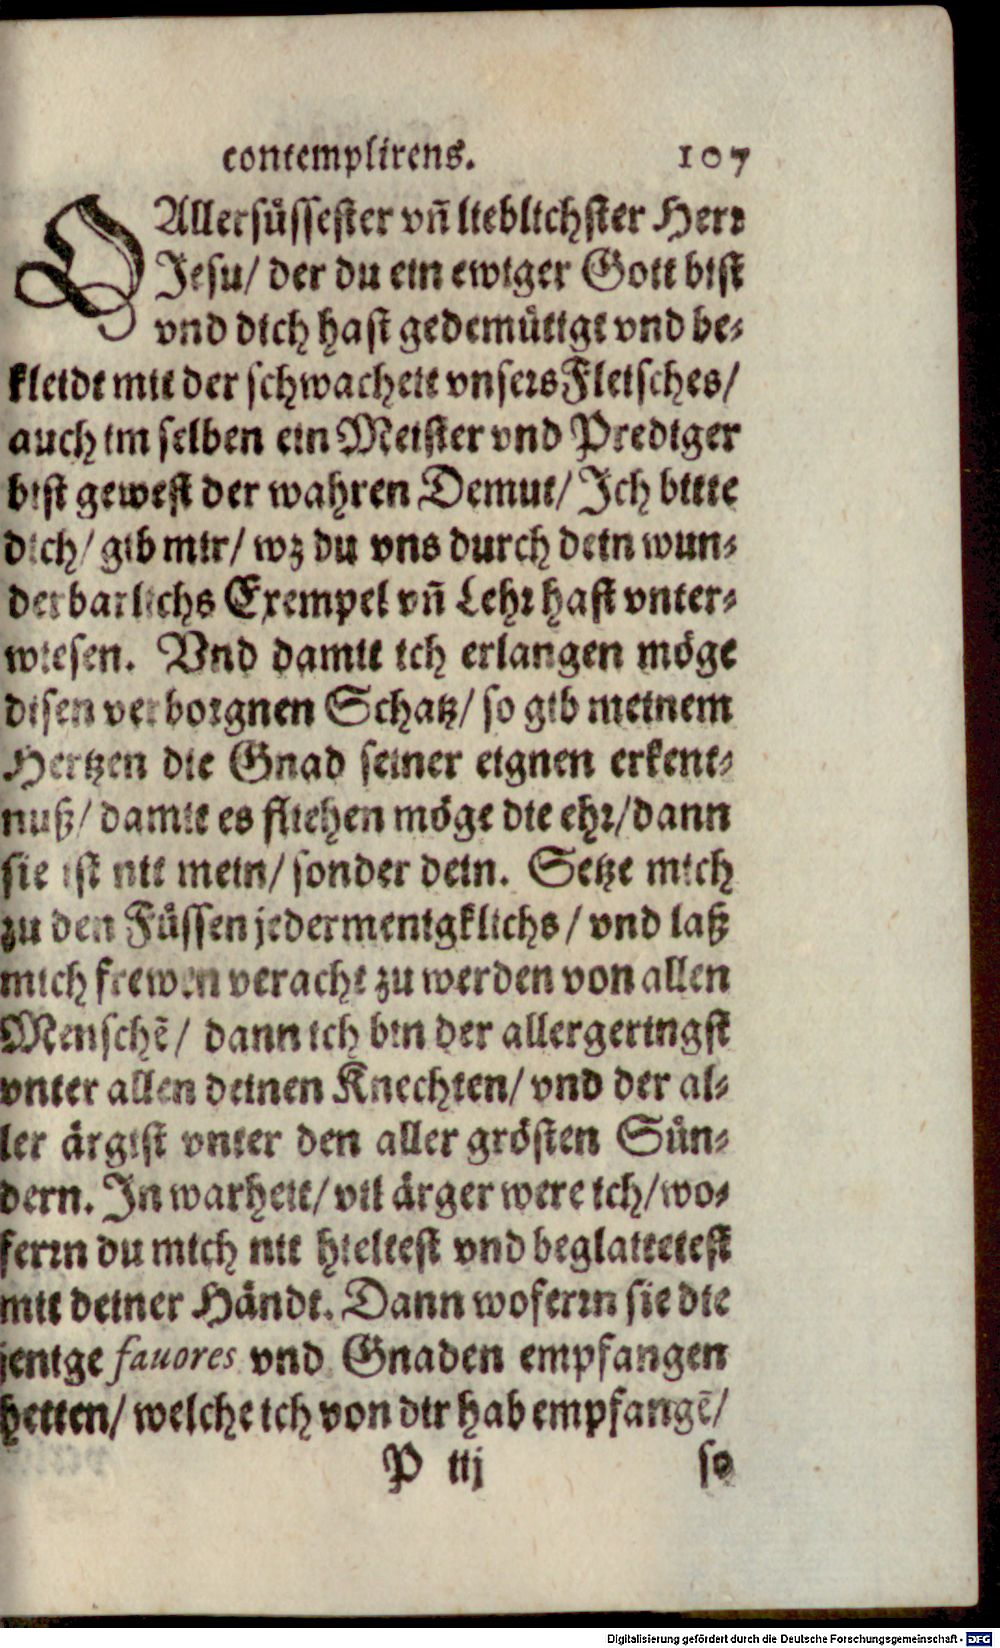 contemplirens. 107
O Allersüssester vñ lieblichster Herr
Jesu/ der du ein ewiger Gott bist
vnd dich hast gedemütigt vnd be-
kleidt mit der schwacheit vnsers Fleisches/
auch im selben ein Meister vnd Prediger
bist gewest der wahren Demut/ Ich bitte
dich/ gib mir/ wz du vns durch dein wun-
derbarlichs Exempel vñ Lehr hast vnter-
wiesen. Vnd damit ich erlangen möge
disen verborgnen Schatz/ so gib meinem
Hertzen die Gnad seiner eignen erkent-
nuß/ damit es fliehen möge die ehr/ dann
sie ist nit mein/ sonder dein. Setze mich
zu den Füssen jedermenigklichs/ vnd laß
mich frewen veracht zu werden von allen
Menschẽ/ dann ich bin der allergeringst
vnter allen deinen Knechten/ vnd der al-
ler ärgist vnter den aller grösten Sün-
dern. In warheit/ vil ärger were ich/ wo-
ferrn du mich nit hieltest vnd beglaittetest
mit deiner Händt. Dann woferrn sie die
jenige fauores vnd Gnaden empfangen
hetten/ welche ich von dir hab empfangẽ/
P iij so
Digitalisierung gefördert durch die Deutsche Forschungsgemeinschaft - DFG